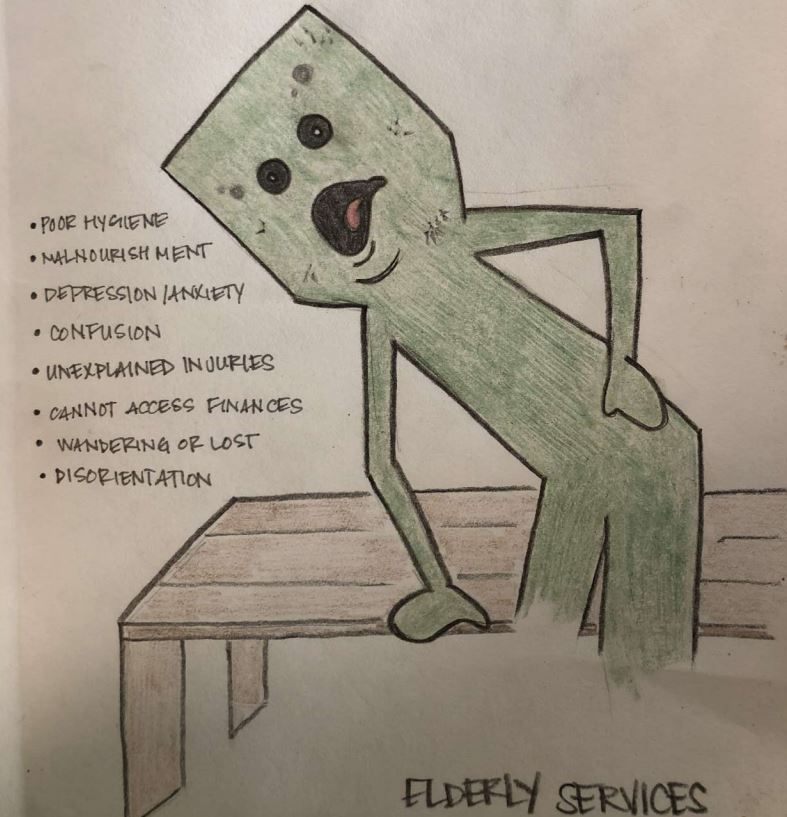 • POOR HYGIENE
• MALNOURISHMENT
• DEPRESSION/ANXIETY
• CONFUSION
• UNEXPLAINED INJURIES
• CANNOT ACCESS FINANCES
• WANDERING OR LOST
• DISORIENTATION
ELDERLY SERVICES